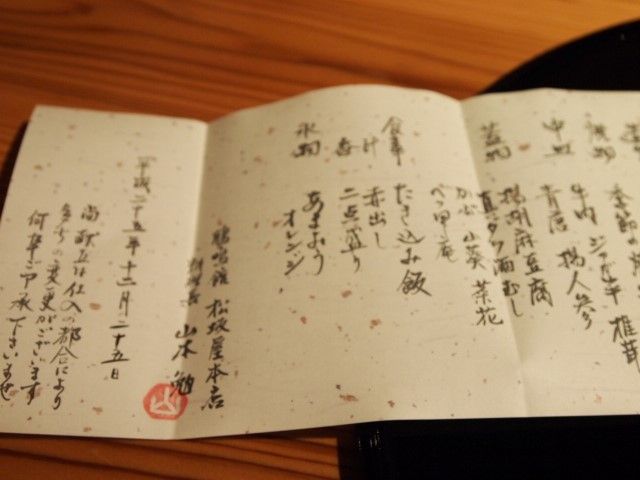 季節の
焼物 牛肉 ジャガ芋 椎茸
中皿 青唐 揚人参
揚胡麻豆腐
蓋物 真ダラ酒むし
かぶ 山葵 菜花
べっ甲庵
食事 たき込み飯
汁 赤出し
香 二点盛り
水物 あまおう
オレンジ
鶴鳴館 松坂屋本店
料理長 山本 勉
平成二十五年十二月二十五日
尚献立は仕入の都合により
多少の変更がございます
何卒ご了承下さいませ